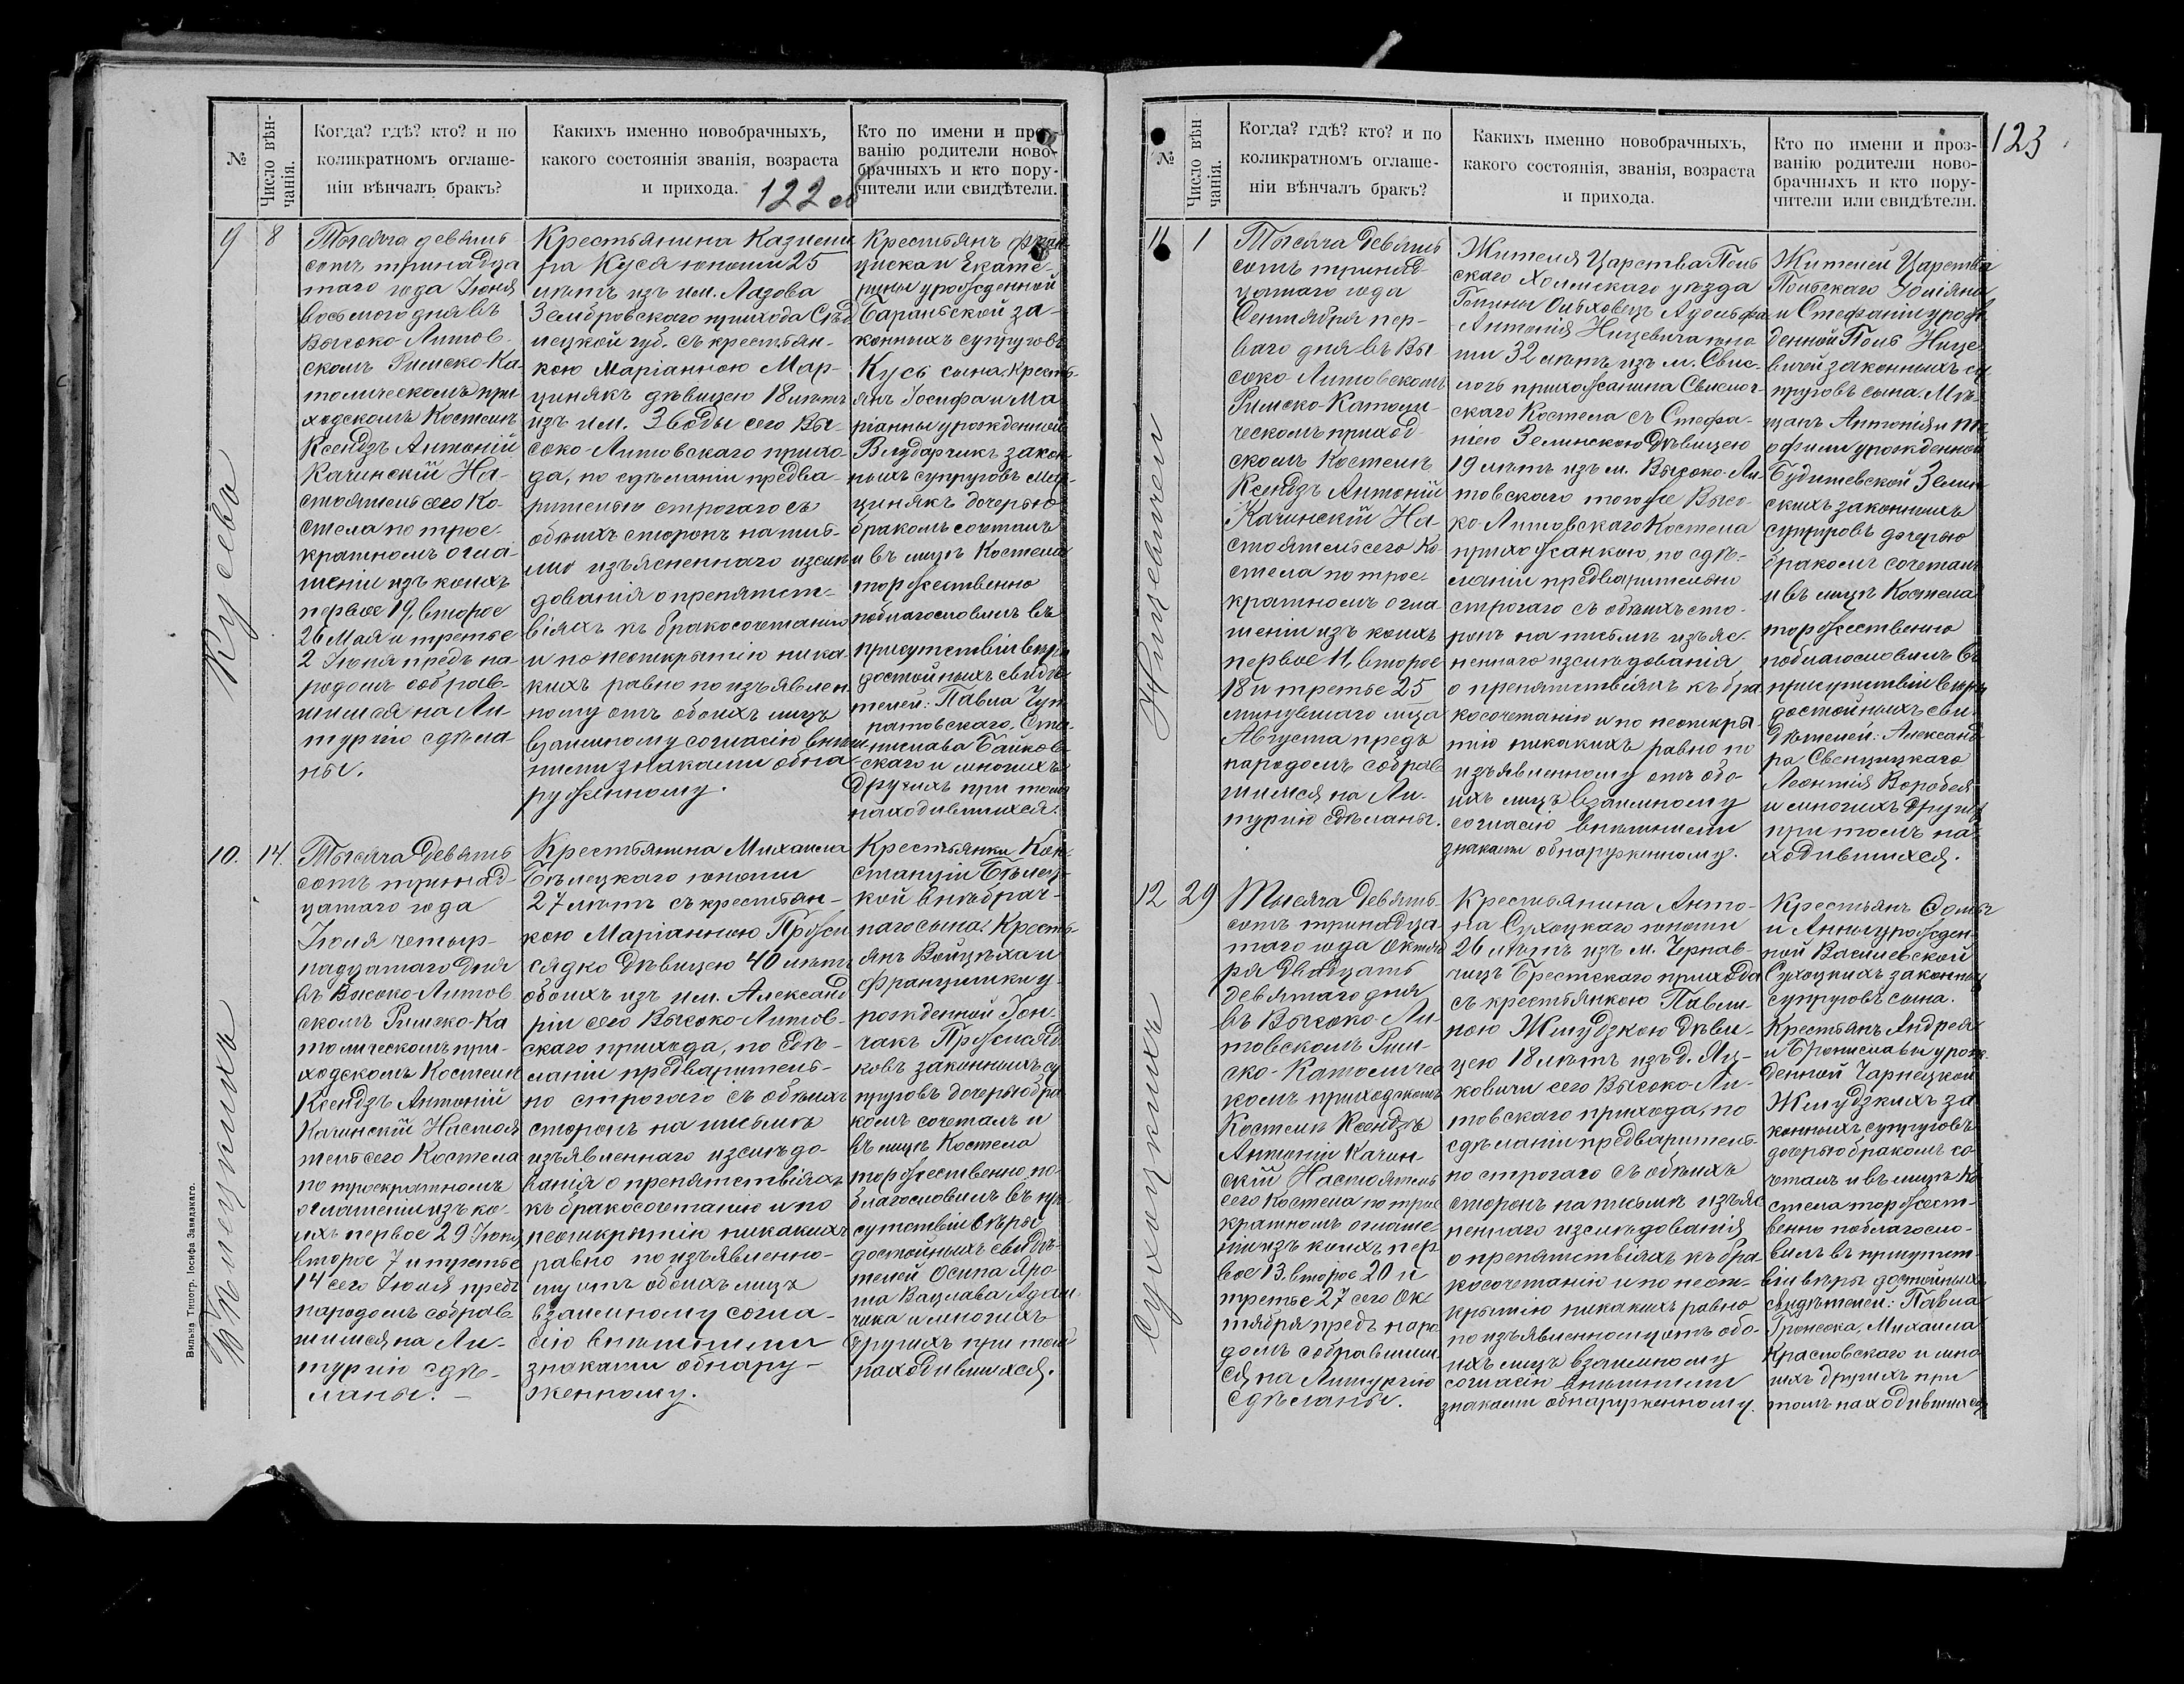 №
Число вѣн-
чанія.
Когда? гдѣ? кто? и по
коликратномъ оглаше-
ніи вѣнчалъ бракъ?
Какихъ именно новобрачныхъ,
какого состоянія званія, возраста
и прихода.
122 об
Кто по имени и проз-
ванію родители ново-
брачныхъ и кто пору-
чители или свидѣтели.
9
8
Кусево
Тысяча девять
сотъ тринадца
таго года Іюня
восьмого дня въ
Высоко-Литов-
скомъ Римско-Ка-
толическомъ при
ходскомъ Костелѣ
Ксендзъ Антоній
Качинскій На-
стоятель сего Ко-
стела по трое-
кратномъ огла-
шеніи изъ коихъ
первое 19, второе
26 Мая и третье
2 Іюня предъ на-
родомъ собрав-
шимся на Ли-
тургію сдѣла-
ны.
Крестьянина Казими
ра Куся юноши 25
лѣтъ изъ им. Лазова
прихода Сѣд
лецкой губ. съ крестьян-
кою Маріанною Мар-
цинякъ дѣвицею 18 лѣтъ
изъ им. Зводы сего Вы-
соко-Литовскаго прихо-
да, по сдѣланіи предва-
рительно строгаго съ
обѣихъ сторонъ на пись-
мѣ изъясненнаго изслѣ
дованія о препятст-
віяхъ къ бракосочетанію
и по неоткрытію ника-
кихъ равно по изъявлен
ному отъ обоихъ лицъ
взаимному согласію внѣш
ними знаками обна
руженному.
Крестьянъ Фран
циска и Екате-
рины урожденной
Бараньской за-
конныхъ супруговъ
Кусь сына, кресть-
янъ Іосифа и Ма
ріанны урожденной
Влударчикъ закон
ныхъ супруговъ Мар-
цинякъ дочерью
бракомъ сочеталъ
и въ лицѣ Костела
торжественно
поблагословилъ въ
присутствіи вѣры
достойныхъ свидѣ
телей: Павла
Ста-
нислава Байков
скаго и многихъ
другихъ при томъ
находившихся.
10.
14.
Бѣлецкихъ
Тысяча девять
сотъ тринад-
цатаго года
Іюля четыр-
надцатаго дня
въ Високо-Литов
скомъ Римско-Ка
толическомъ при-
ходскомъ Костелѣ
Ксендзъ Антоній
Качинскій Настоя
тель сего Костела
по троекратномъ
оглашеніи изъ ко-
ихъ первое 29 Іюня,
второе 7 и третье
14 сего Іюля предъ
народомъ собрав-
шимся на Ли-
тургію сдѣ-
ланы. –
Крестьянина Михаила
Бѣлецкаго юноши
27 лѣтъ съ крестьян-
кою Маріанною Прожи
сядко дѣвицею 40 лѣтъ
обоихъ изъ им. Александ
ріи сего Высоко-Литов-
скаго прихода, по сдѣ-
ланіи предваритель-
но строгаго съ обѣихъ
сторонъ на письмѣ
изъявленнаго изслѣдо-
ванія о препятствіяхъ
къ бракосочетанію и по
неоткрытію никакихъ
равно по изъявленно-
му отъ обоихъ лицъ
взаимному согла-
сію внѣшними
знаками обнару-
женному.
Крестьянки Кон-
станціи Бѣлец-
кой внѣбрач-
наго сына. Кресть-
янъ Войцѣха и
Францишки у-
рожденной Гон-
чакъ
законныхъ су
пруговъ дочерью бра
комъ сочеталъ и
въ лицѣ Костела
торжественно по-
благословилъ въ при
сутствіи вѣры
достойныхъ свидѣ-
телей Осипа Яро-
ша Вацлава Адам-
чика и многихъ
другихъ при томъ
находившихся.
Вильна Типогр. Іосифа Завадзкаго.
123
№
Число вѣн
чанія.
Когда? гдѣ? кто? и по
коликратномъ оглаше-
ніи вѣнчалъ бракъ?
Какихъ именно новобрачныхъ,
какого состоянія, званія, возраста
и прихода.
Кто по имени и проз-
ванію родители ново-
брачныхъ и кто пору-
чители или свидѣтели.
11
1
Ницевичей
Тысяча девять
сотъ тринад-
цатаго года
Сентября пер-
ваго дня въ Вы
соко-Литовскомъ
Римско-Католи-
ческомъ приход
скомъ Костелѣ
Ксендзъ Антоній
Качинскій На-
стоятель сего Ко-
стела по трое-
кратномъ огла-
шеніи изъ коихъ
первое 11, второе
18 и третье 25
минувшаго мца
Августа предъ
народомъ собрав
шимся на Ли-
тургію сдѣланы.
Жителя Царства Поль
скаго Холмскаго уѣзда
Гмины Ольховецъ Адольфа
Антонія Ницевича юно
ши 32 лѣтъ изъ м. Свис-
лочь прихожанина Свислоч-
скаго Костела съ Стефа-
ніею Зелинскою дѣвицею
19 лѣтъ изъ м. Высоко-Ли
товскаго того же Высо-
ко-Литовскаго Костела
прихожанкою, по сдѣ-
ланіи предварительно
строгаго съ обѣихъ сто-
ронъ на письмѣ изъяс-
неннаго изслѣдованія
о препятствіяхъ къ бра
косочетанію и по неоткры-
тію никакихъ равно по
изъявленному отъ обо-
ихъ лицъ взаимному
согласію внѣшними
знаками обнаруженному.
Жителей Царства
Польскаго Юліана
и Стефаніи урож
денной Поль Нице
вичей законныхъ су
пруговъ сына. Мѣ-
щанъ Антонія и Те
офили урожденной
Будишевской Зелин
скихъ законныхъ
супруговъ дочерью
бракомъ сочеталъ
и въ лицѣ Костела
торжественно
поблагословилъ въ
присутствіи вѣры
достойныхъ сви-
дѣтелей: Александ
ра Свенцицкаго
Леонтія Воробея
и многихъ другихъ
при томъ на-
ходившихся.
12
29
Сухоцкихъ
Тысяча девять-
сотъ тринадца
таго года Октяб
ря двадцать
девятаго дня
въ Высоко-Ли
товскомъ Рим-
ско-Католичес
комъ приходскомъ
Костелѣ Ксендзъ
Антоній Качин-
скій Настоятель
сего Костела по трое
кратномъ оглаше-
ніи изъ коихъ пер
вое 13, второе 20 и
третье 27 сего Ок
тября предъ наро
домъ собравшим
ся на Литургію
сдѣланы.
Крестьянина Анто-
на Сухоцкаго юноши
26 лѣтъ изъ м. Чернав-
чицъ Брестскаго прихода
съ крестьянкою Павли-
ною Жмудзкою дѣви-
цею 18 лѣтъ изъ д. Яц-
ковичи сего Высоко-Ли-
товскаго прихода, по
сдѣланіи предваритель-
но строгаго съ обѣихъ
сторонъ на письмѣ изъяс
неннаго изслѣдованія
о препятствіяхъ къ бра-
косочетанію и по неот-
крытію никакихъ равно
по изъявленному отъ обо-
ихъ лицъ взаимному
согласію внѣшними
знаками обнаруженному.
Крестьянъ Фомы
и Анны урожден-
ной Василевской
Сухоцкихъ законныхъ
супруговъ сына.
Крестьянъ Андрея
и Брониславы урож-
денной Чарнецкой
Жмудзкихъ за
конныхъ супруговъ
дочерью бракомъ со-
четалъ и въ лицѣ Ко
стела торжест-
венно поблагосло-
вилъ въ присутст-
віи вѣры достойныхъ
свидѣтелей: Павла
Михаила
Красновскаго и мно
гихъ другихъ при
томъ находившихся